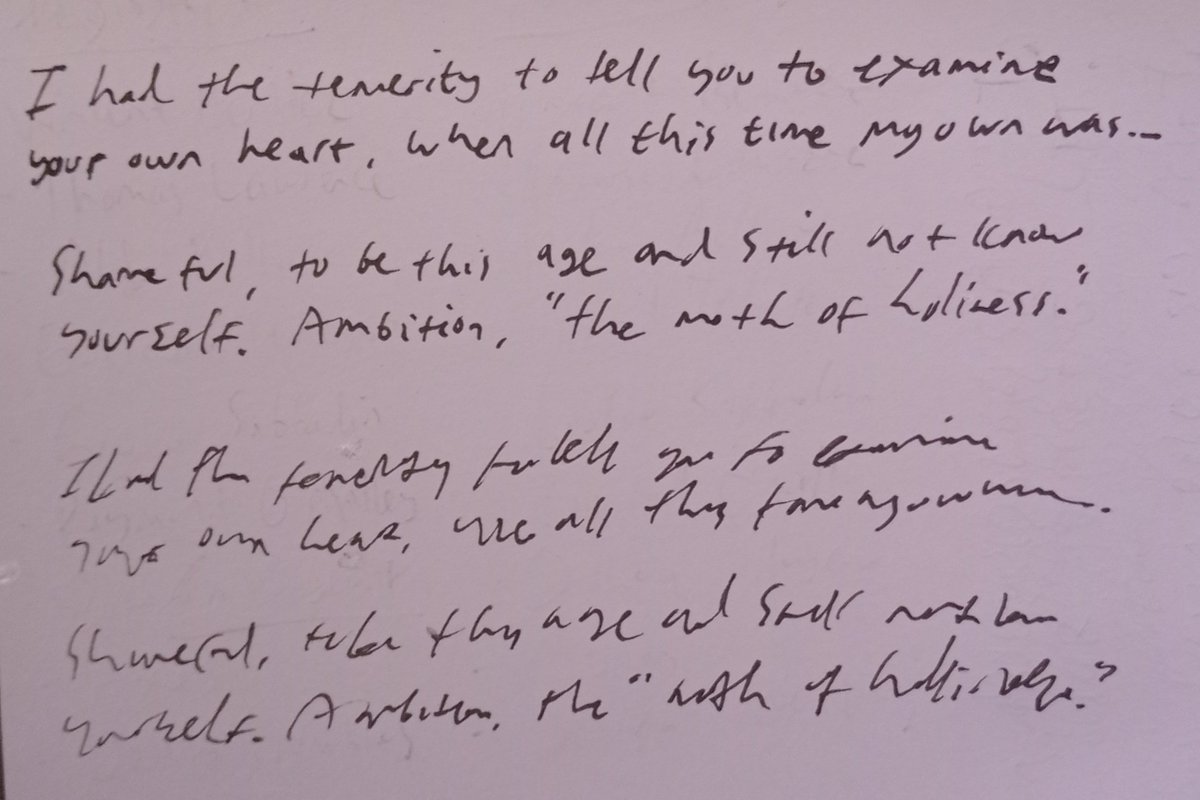 I had the temerity to tell you to examine
your own heart, when all this time my own was...
Shameful, to be this age and still not know
yourself. Ambition, "the moth of holiness."
I had the temerity to tell you to examine
your own heart, when all this time my own was.
Shameful, to be this age and still not know
yourself. Ambition, the "moth of holiness."